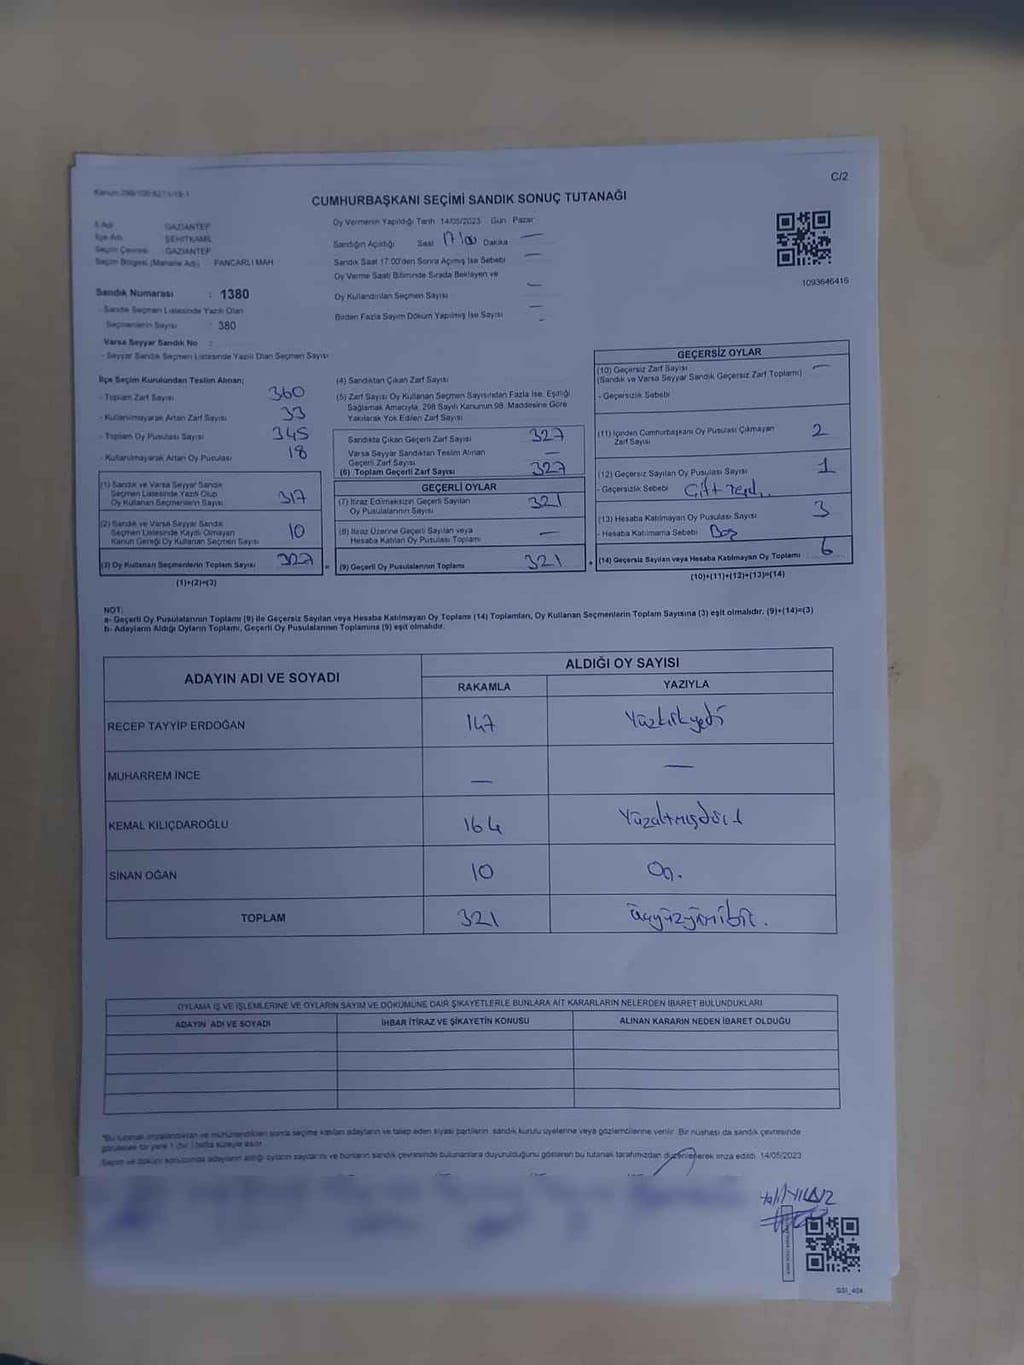 C/2
CUMHURBAŞKANI SEÇİMİ SANDIK SONUÇ TUTANAĞI
İl Adı GAZİANTEP
İlçe Adı ŞEHİTKAMİL
Seçim Çevresi GAZİANTEP
Seçim Bölgesi (Mahalle Adı) PANCARLI MAH
Sandık Numarası : 1380
- Sandık Seçmen Listesinde Yazılı Olan
Seçmenlerin Sayısı : 380
Varsa Seyyar Sandık No :
- Seyyar Sandık Seçmen Listesinde Yazılı Olan Seçmen Sayısı :
Oy Vermenin Yapıldığı Tarih 14/05/2023 Gün Pazar
Sandığın Açıldığı Saat 17:00 Dakika —
Sandık Saat 17:00'den Sonra Açılmış İse Sebebi —
Oy Verme Saati Bitiminde Sırada Bekleyen ve
Oy Kullandırılan Seçmen Sayısı —
Birden Fazla Sayım Döküm Yapılmış İse Sayısı —
1093646416
İlçe Seçim Kurulundan Teslim Alınan;
- Toplam Zarf Sayısı 360
- Kullanılmayarak Artan Zarf Sayısı 33
- Toplam Oy Pusulası Sayısı 345
- Kullanılmayarak Artan Oy Pusulası 18
(1) Sandık ve Varsa Seyyar Sandık
Seçmen Listesinde Yazılı Olup
Oy Kullanan Seçmenlerin Sayısı 317
(2) Sandık ve Varsa Seyyar Sandık
Seçmen Listesinde Kayıtlı Olmayan
Kanun Gereği Oy Kullanan Seçmen Sayısı 10
(3) Oy Kullanan Seçmenlerin Toplam Sayısı 327
(1)+(2)=(3)
(4) Sandıktan Çıkan Zarf Sayısı
(5) Zarf Sayısı Oy Kullanan Seçmen Sayısından Fazla İse, Eşitliği
Sağlamak Amacıyla, 298 Sayılı Kanunun 98. Maddesine Göre
Yakılarak Yok Edilen Zarf Sayısı
Sandıkta Çıkan Geçerli Zarf Sayısı 327
Varsa Seyyar Sandıktan Teslim Alınan
Geçerli Zarf Sayısı —
(6) Toplam Geçerli Zarf Sayısı 327
GEÇERLİ OYLAR
(7) İtiraz Edilmeksizin Geçerli Sayılan
Oy Pusulalarının Sayısı 321
(8) İtiraz Üzerine Geçerli Sayılan veya
Hesaba Katılan Oy Pusulası Toplamı —
= (9) Geçerli Oy Pusulalarının Toplamı 321
GEÇERSİZ OYLAR
(10) Geçersiz Zarf Sayısı —
(Sandık ve Varsa Seyyar Sandık Geçersiz Zarf Toplamı)
- Geçersizlik Sebebi
(11) İçinden Cumhurbaşkanı Oy Pusulası Çıkmayan
Zarf Sayısı 2
(12) Geçersiz Sayılan Oy Pusulası Sayısı 1
- Geçersizlik Sebebi Çift
(13) Hesaba Katılmayan Oy Pusulası Sayısı 3
- Hesaba Katılmama Sebebi Boş
+ (14) Geçersiz Sayılan veya Hesaba Katılmayan Oy Toplamı 6
(10)+(11)+(12)+(13)=(14)
NOT:
a- Geçerli Oy Pusulalarının Toplamı (9) ile Geçersiz Sayılan veya Hesaba Katılmayan Oy Toplamı (14) Toplamları, Oy Kullanan Seçmenlerin Toplam Sayısına (3) eşit olmalıdır. (9)+(14)=(3)
b- Adayların Aldığı Oyların Toplamı, Geçerli Oy Pusulalarının Toplamına (9) eşit olmalıdır.
ADAYIN ADI VE SOYADI ALDIĞI OY SAYISI
RAKAMLA YAZIYLA
RECEP TAYYİP ERDOĞAN 147 Yüzkırkyedi
MUHARREM İNCE — —
KEMAL KILIÇDAROĞLU 164 Yüzaltmışdört
SİNAN OĞAN 10 On.
TOPLAM 321 üçyüzyirmibir.
OYLAMA İŞ VE İŞLEMLERİNE VE OYLARIN SAYIM VE DÖKÜMÜNE DAİR ŞİKAYETLERLE BUNLARA AİT KARARLARIN NELERDEN İBARET BULUNDUKLARI
ADAYIN ADI VE SOYADI İHBAR İTİRAZ VE ŞİKAYETİN KONUSU ALINAN KARARIN NEDEN İBARET OLDUĞU
"Bu tutanak imzalandıktan ve mühürlendikten sonra seçime katılan adayların ve talep eden siyasi partilerin, sandık kurulu üyelerine veya gözlemcilerine verilir. Bir nüshası da sandık çevresinde
görülecek bir yere 1 (bir) hafta süreyle asılır.
Seçim ve döküm sonucunda adayların aldığı oyların sayılarını ve bunların sandık çevresinde bulunanlara duyurulduğunu gösteren bu tutanak tarafımızdan düzenlenerek imza edildi. 14/05/2023
YILDIZ
GSI_404